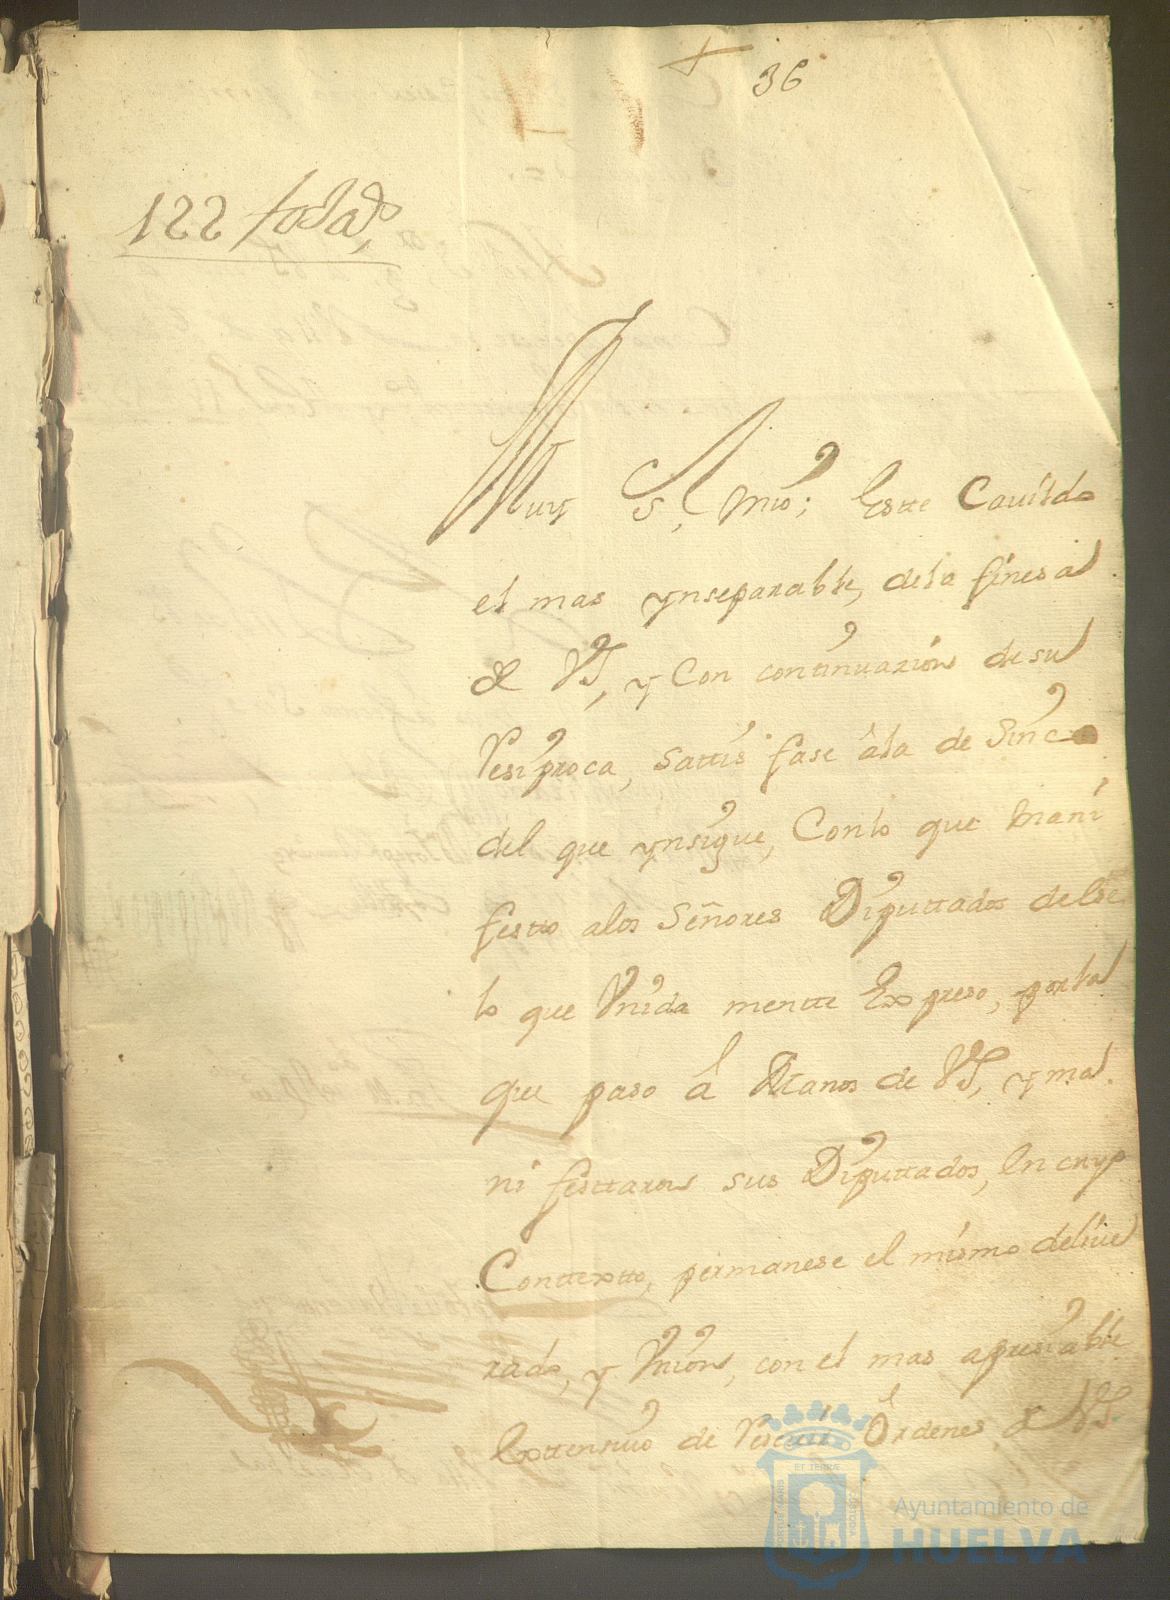 36
122
Muy S. Mio; Este Cavildo
el mas ynseparable, dela finesa
de VS, y Con continuazion de su
Resiproca, sattis fase âla de
del que ynsigue, Conlo que mani
festto alos Señores Diputtados
lo que Vnida mentte Expreso, porla
que paso â Manos de VS, y ma
ni festtaron sus Diputtados, En cuyo
Conttextto, permanese el mismo delive
rado, y Vnion, con el mas apresiable
Exttensivo de Ordenes de VS.
PORTUS MARIS
ET TERRÆ
CUSTODIA
Ayuntamiento de
HUELVA